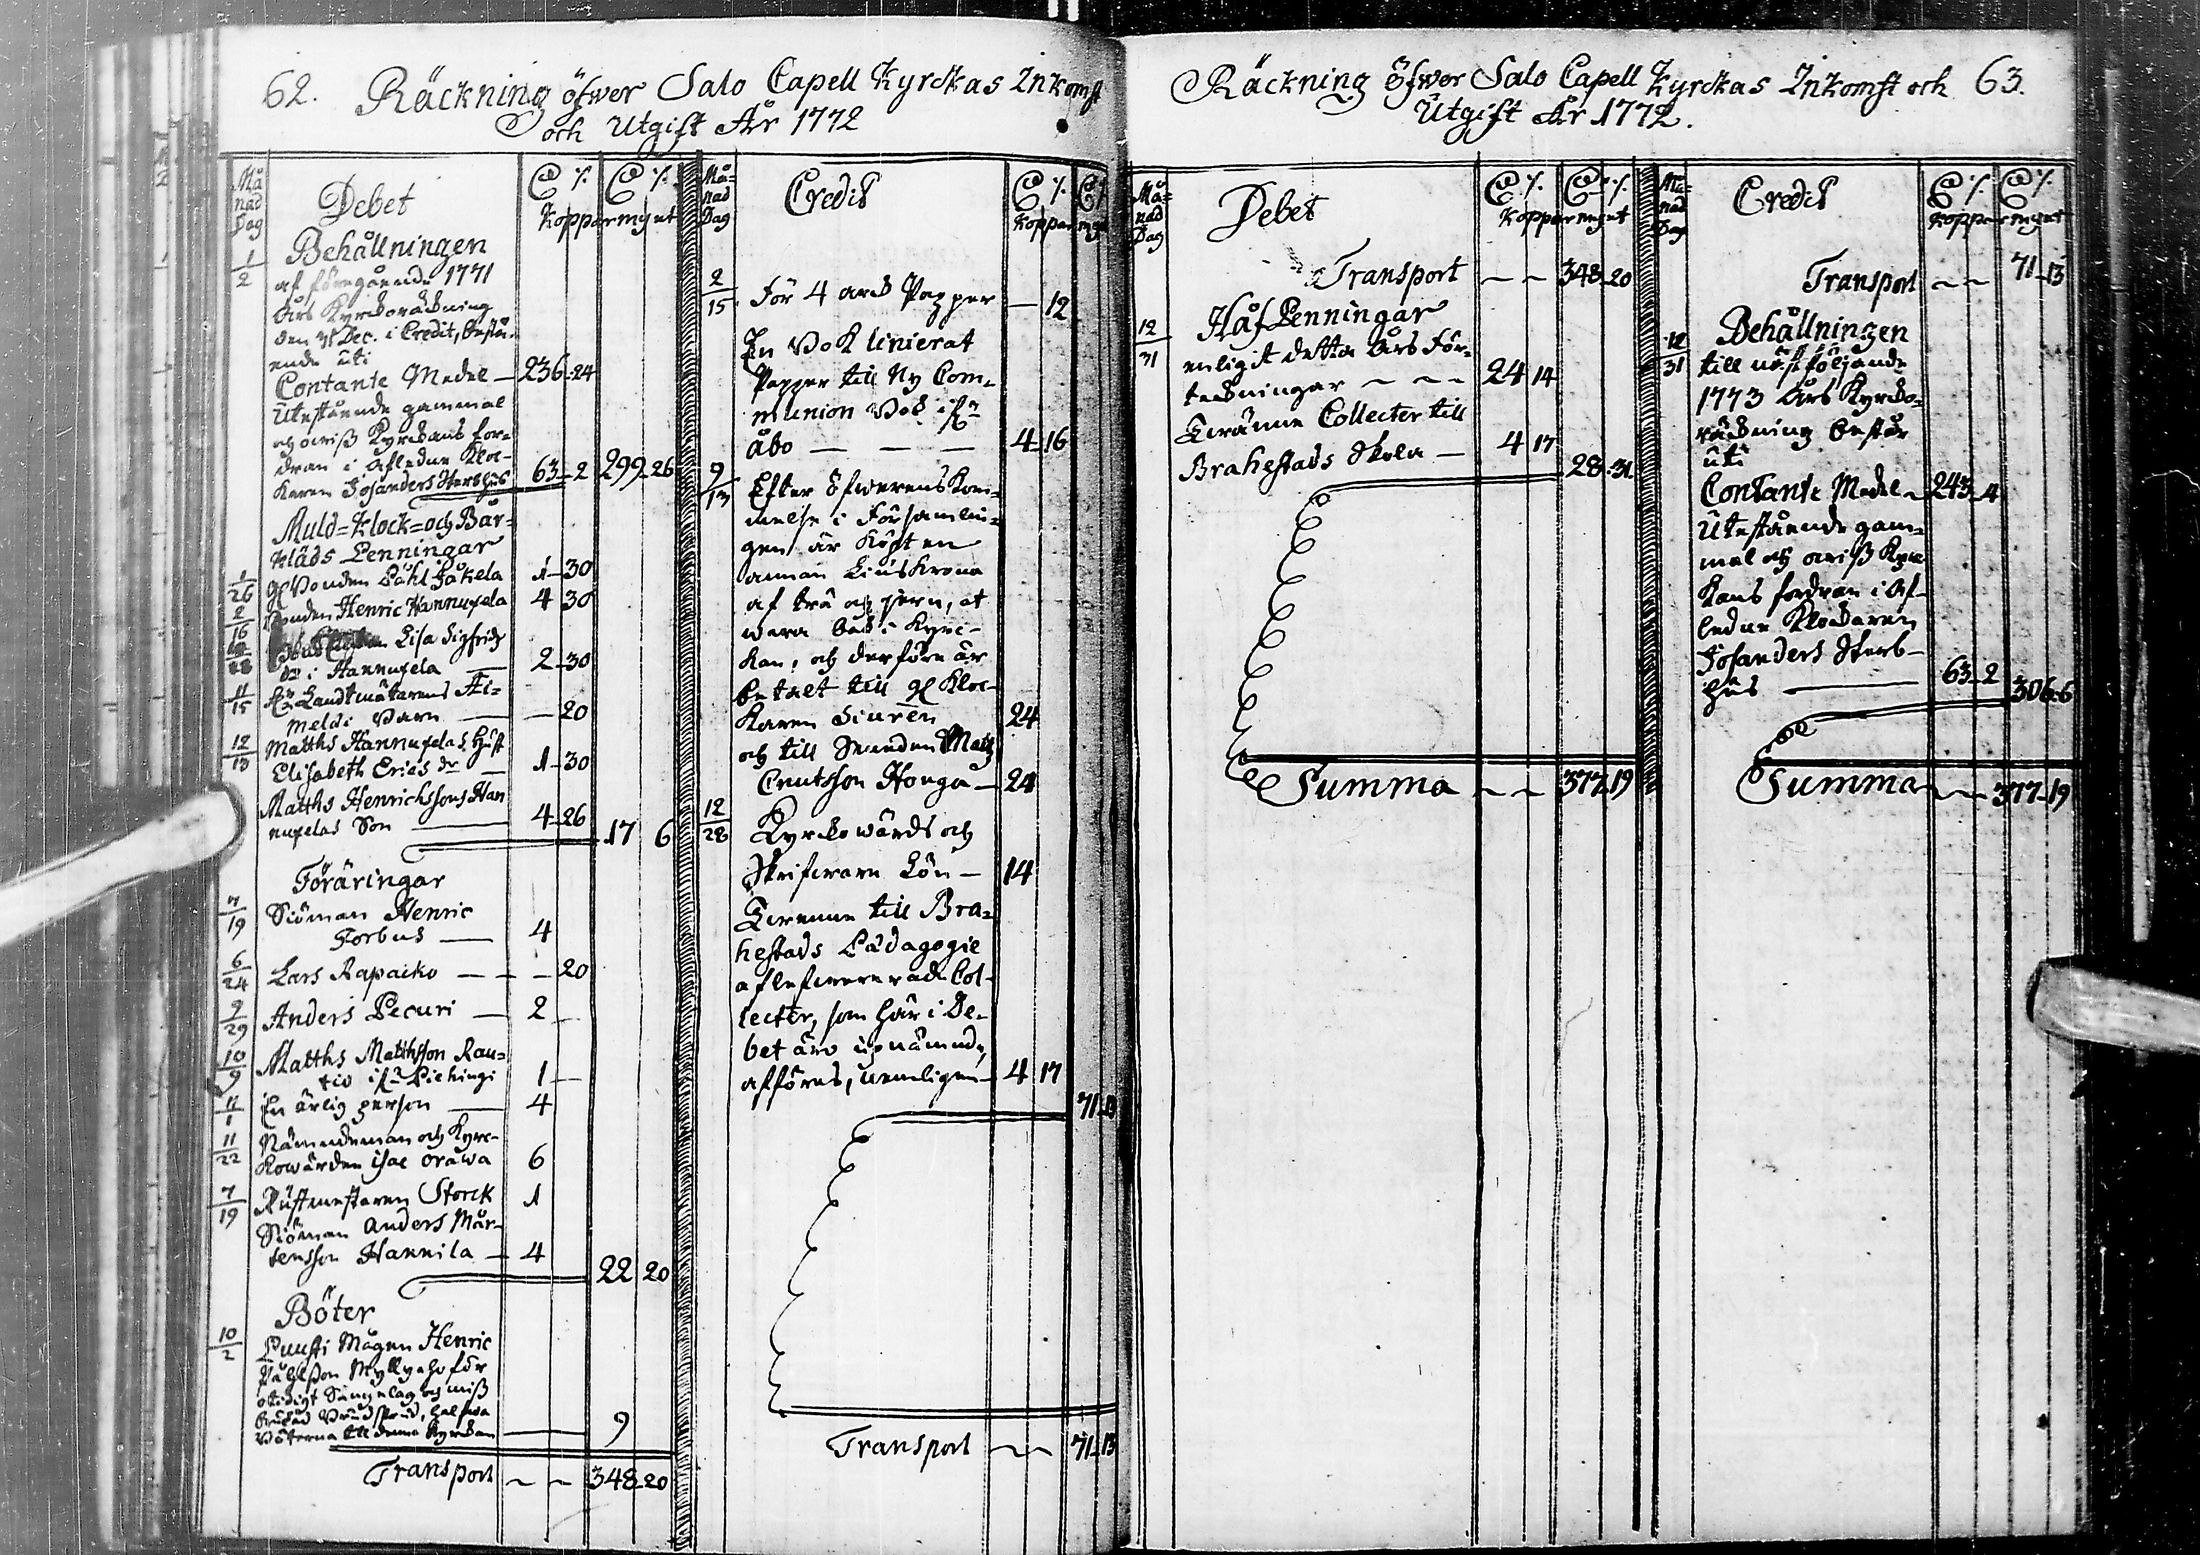 62. Räckning öfwer Salo Capell Kyrckas Inkomst
och Utgift År 1772
Må
nad
Dag
Debet
Kopparmynt
Behållningen
1/2
af föregående 1771
Års Kyrckoräckning
den 31 Dec. i Credit, bestå-
ende uti
Contante Medel — 236 24
Utestående gammal
och oviss Kyrckans for-
dran i Afledne Kloc-
karen Josanders Sterbhus 63 2 299 26
Muld=Klock= och Bår=
kläds Penningar
1/26 Gl Bonden Påhl Jåkela 1 30
2/16 Bonden Henric Hannuxela 4 30
Lisa Sigfridz
dr i Hannuxela — 2 30
11/15 Hr Landtmätarens Ai-
melæi Barn — 20
12/13 Matths Hannuxelas Hust
Elisabeth Erics dr — 1 30
Matths Henrichssons Han
nuxelas Son — 4 26
17 6
Föräringar
Siöman Henric
Forbus — 4
6/24 Lars Rapaiko — — 20
9/29 Anders Pecuri — 2 —
10/9 Matths Matthsson Rau=
tio ifrn Piehingi 1 —
11/1 En ärlig person — 4
11/22 Nämndeman och Kyrc-
kowärden Isac Orawa 6
7/19 Rustmestaren Storck 1
Siöman Anders Mår-
tensson Hannila — 4
22 20
Böter
10/2 Puusti Mågen Henric
Påhlsson Myllyaho för
otidigt Sängelag och miss
brukad Brudskrud, halfwa
Böterna till denna Kyrckan — 9
Transport — — 348 20
Må=
nad
Dag
Credit
Kopparmynt
2/15 För 4 arck Papper — 12
En Bok linierat
Papper till Ny Com-
munion Bok ifrn
Åbo — — — 4 16
9/13 Efter Öfwerenskom-
melse i Församlin-
gen är Köpt en
annan Liuskrona
af trä och jern, at
wara här i Kyrc-
kan, och derföre är
betalt till gl Kloc-
karen Siurén 24
och till Smeden Matts
Cnutsson Honga — 24
12/28 Kyrckowärds och
Skrifware Lön — 14
Twenne till Bra-
hestads Pædagogie
aflefwererade Col-
lecter, som här i De-
bet äro upnämnde,
afföres, nemligen — 4 17
71 13
Transport — — 71 13
Räckning Öfwer Salo Capell Kyrckas Inkomst och 63.
Utgift År 1772.
Må=
nad
Dag
Debet
Kopparmynt
Transport — — 348 20
12/31 Håf Penningar
enligit detta Års För-
teckningar — — — 24 14
Twänne Collecter till
Brahestads Skola — 4 17
28 31
Summa — — 377 19
Må=
nad
Dag
Credit
Kopparmynt
Transport — — 71 13
12/31 Behållningen
till näst följande
1773 Års Kyrcko-
räckning består
uti
Contante Medel — 243 4
Utestående gam-
mal och oviss Kyrc
kans fordran i Af-
ledne Klockaren
Josanders Sterb-
hus — 63 2
306 6
Summa — — 377 19